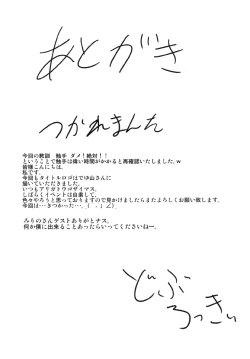 あとがき
つかれまんた
今回の教訓　触手 ダメ！絶対！！
ということで触手は偉い時間がかかると再確認いたしました。w
皆様こんにちは。
私です。
今回もタイトルロゴはでゆ山さんに
描いていただきました。
いつもアリガトウゴザイマス。
しばらくイベントは自粛して、
色々やろうと思っておりますので見かけましたらまたよろしくお願い致します。
今回は…きつかった…。(　。」∠)
みらのさんゲストありがとナス。
何か僕に出来ることあったらいってくださいねー。
どぶろっきぃ